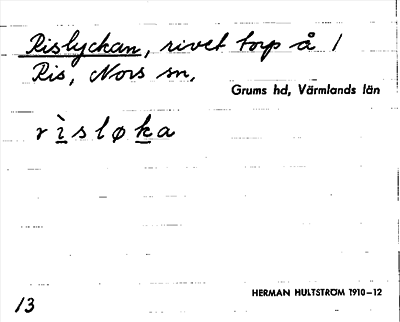 Rislyckan, rivet torp å 1
Ris, Nors sn,
Grums hd, Värmlands län
rìsløka
HERMAN HULTSTRÖM 1910–12
13